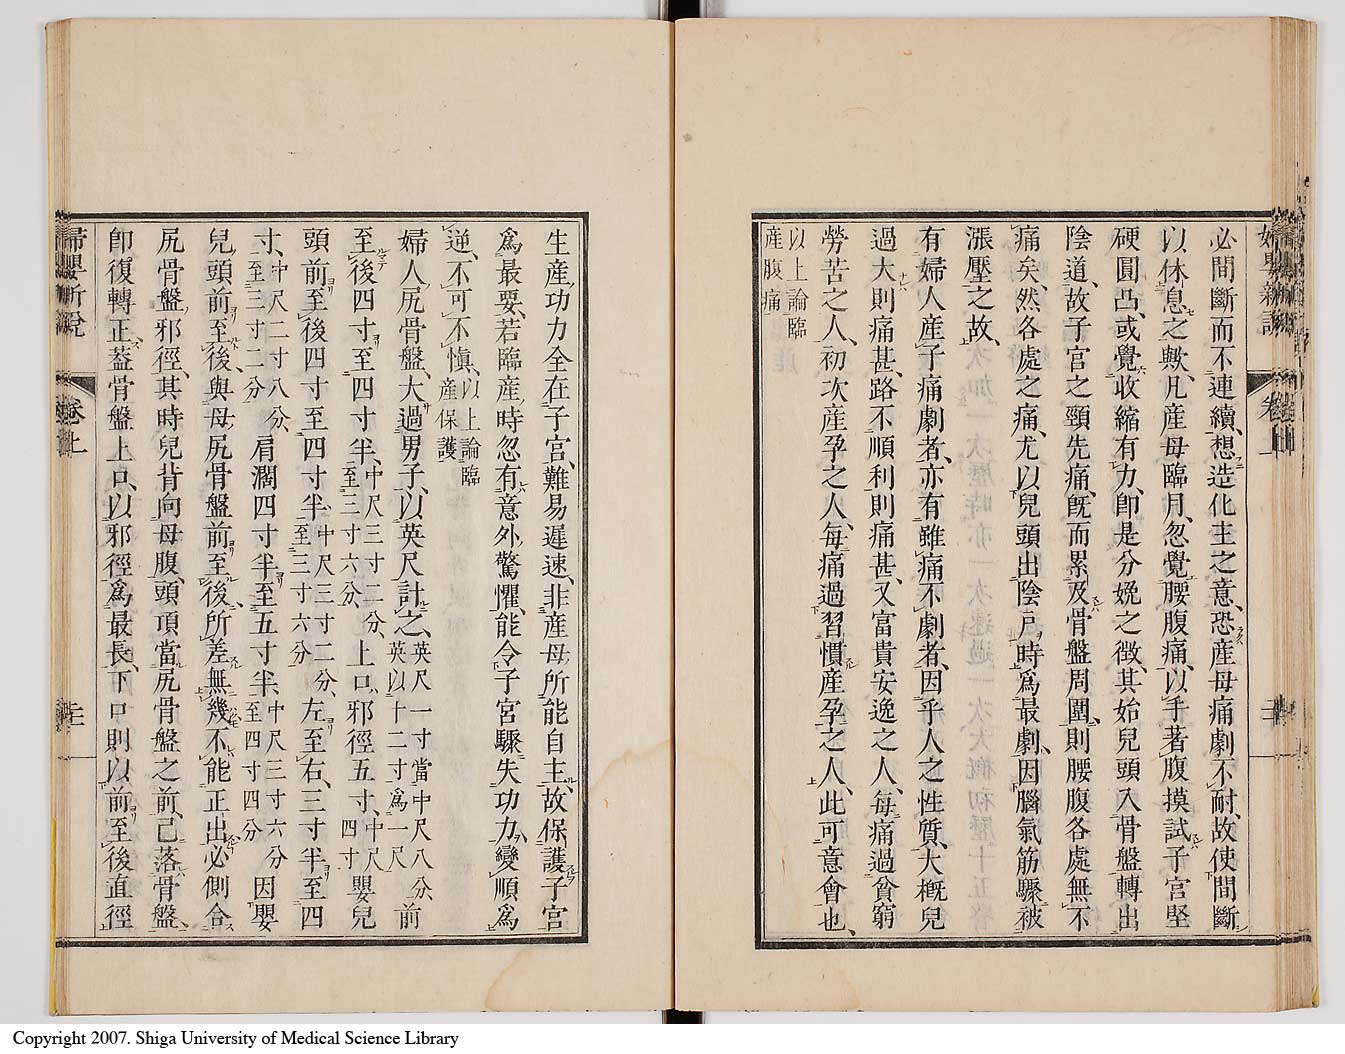 必間斷而不連續、想造化主之意、恐産母痛劇不耐、故使間斷
以休息之歟、凡産母臨月、忽覺腰腹痛、以手著腹摸試子宮堅
硬圓凸、或覺收縮有力、即是分娩之徴、其始兒頭入骨盤轉出
陰道、故子宮之頸先痛、既而累及骨盤周圍、則腰腹各處無不
痛矣、然各處之痛、尤以兒頭出陰戸時爲最劇、因腦氣筋驟被
漲壓之故、
有婦人産子痛劇者、亦有雖痛不劇者、因乎人之性質、大概兒
過大則痛甚、路不順利則痛甚、又富貴安逸之人、毎痛過貧窮
勞苦之人、初次産孕之人、毎痛過習慣産孕之人、此可意會也、
以上論臨
産腹痛
生産功力全在子宮、難易遲速、非産母所能自主、故保護子宮
爲最要、若臨産時忽有意外驚懼、能令子宮驟失功力、變順爲
逆、不可不愼、以上論臨
産保護
婦人尻骨盤、大過男子、以英尺計之、英尺一寸當中尺八分、
英以十二寸爲一尺 前
至後四寸至四寸半、中尺三寸二分、
至三寸六分、 上口邪徑五寸、中尺
四寸 嬰兒
頭前至後四寸至四寸半、中尺三寸二分、
至三寸六分 左至右、三寸半至四
寸、中尺二寸八分、
至三寸二分 肩濶四寸半至五寸半、中尺三寸六分
至四寸四分 因嬰
兒頭前至後、與母尻骨盤前至後、所差無幾、不能正出、必側合
尻骨盤邪徑、其時兒背向母腹、頭頂當尻骨盤之前、已落骨盤、
即復轉正、葢骨盤上口、以邪徑爲最長、下口則以前至後直徑
卷上